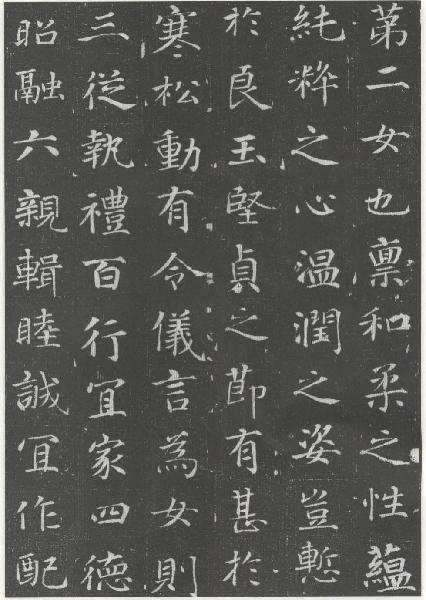 苐二女也禀和柔之性蘊
純粹之心温潤之姿豈慙
於良玉堅貞之莭有甚於
寒松動有令儀言為女則
三従執禮百行冝家四德
昭融六親輯睦誠冝作配